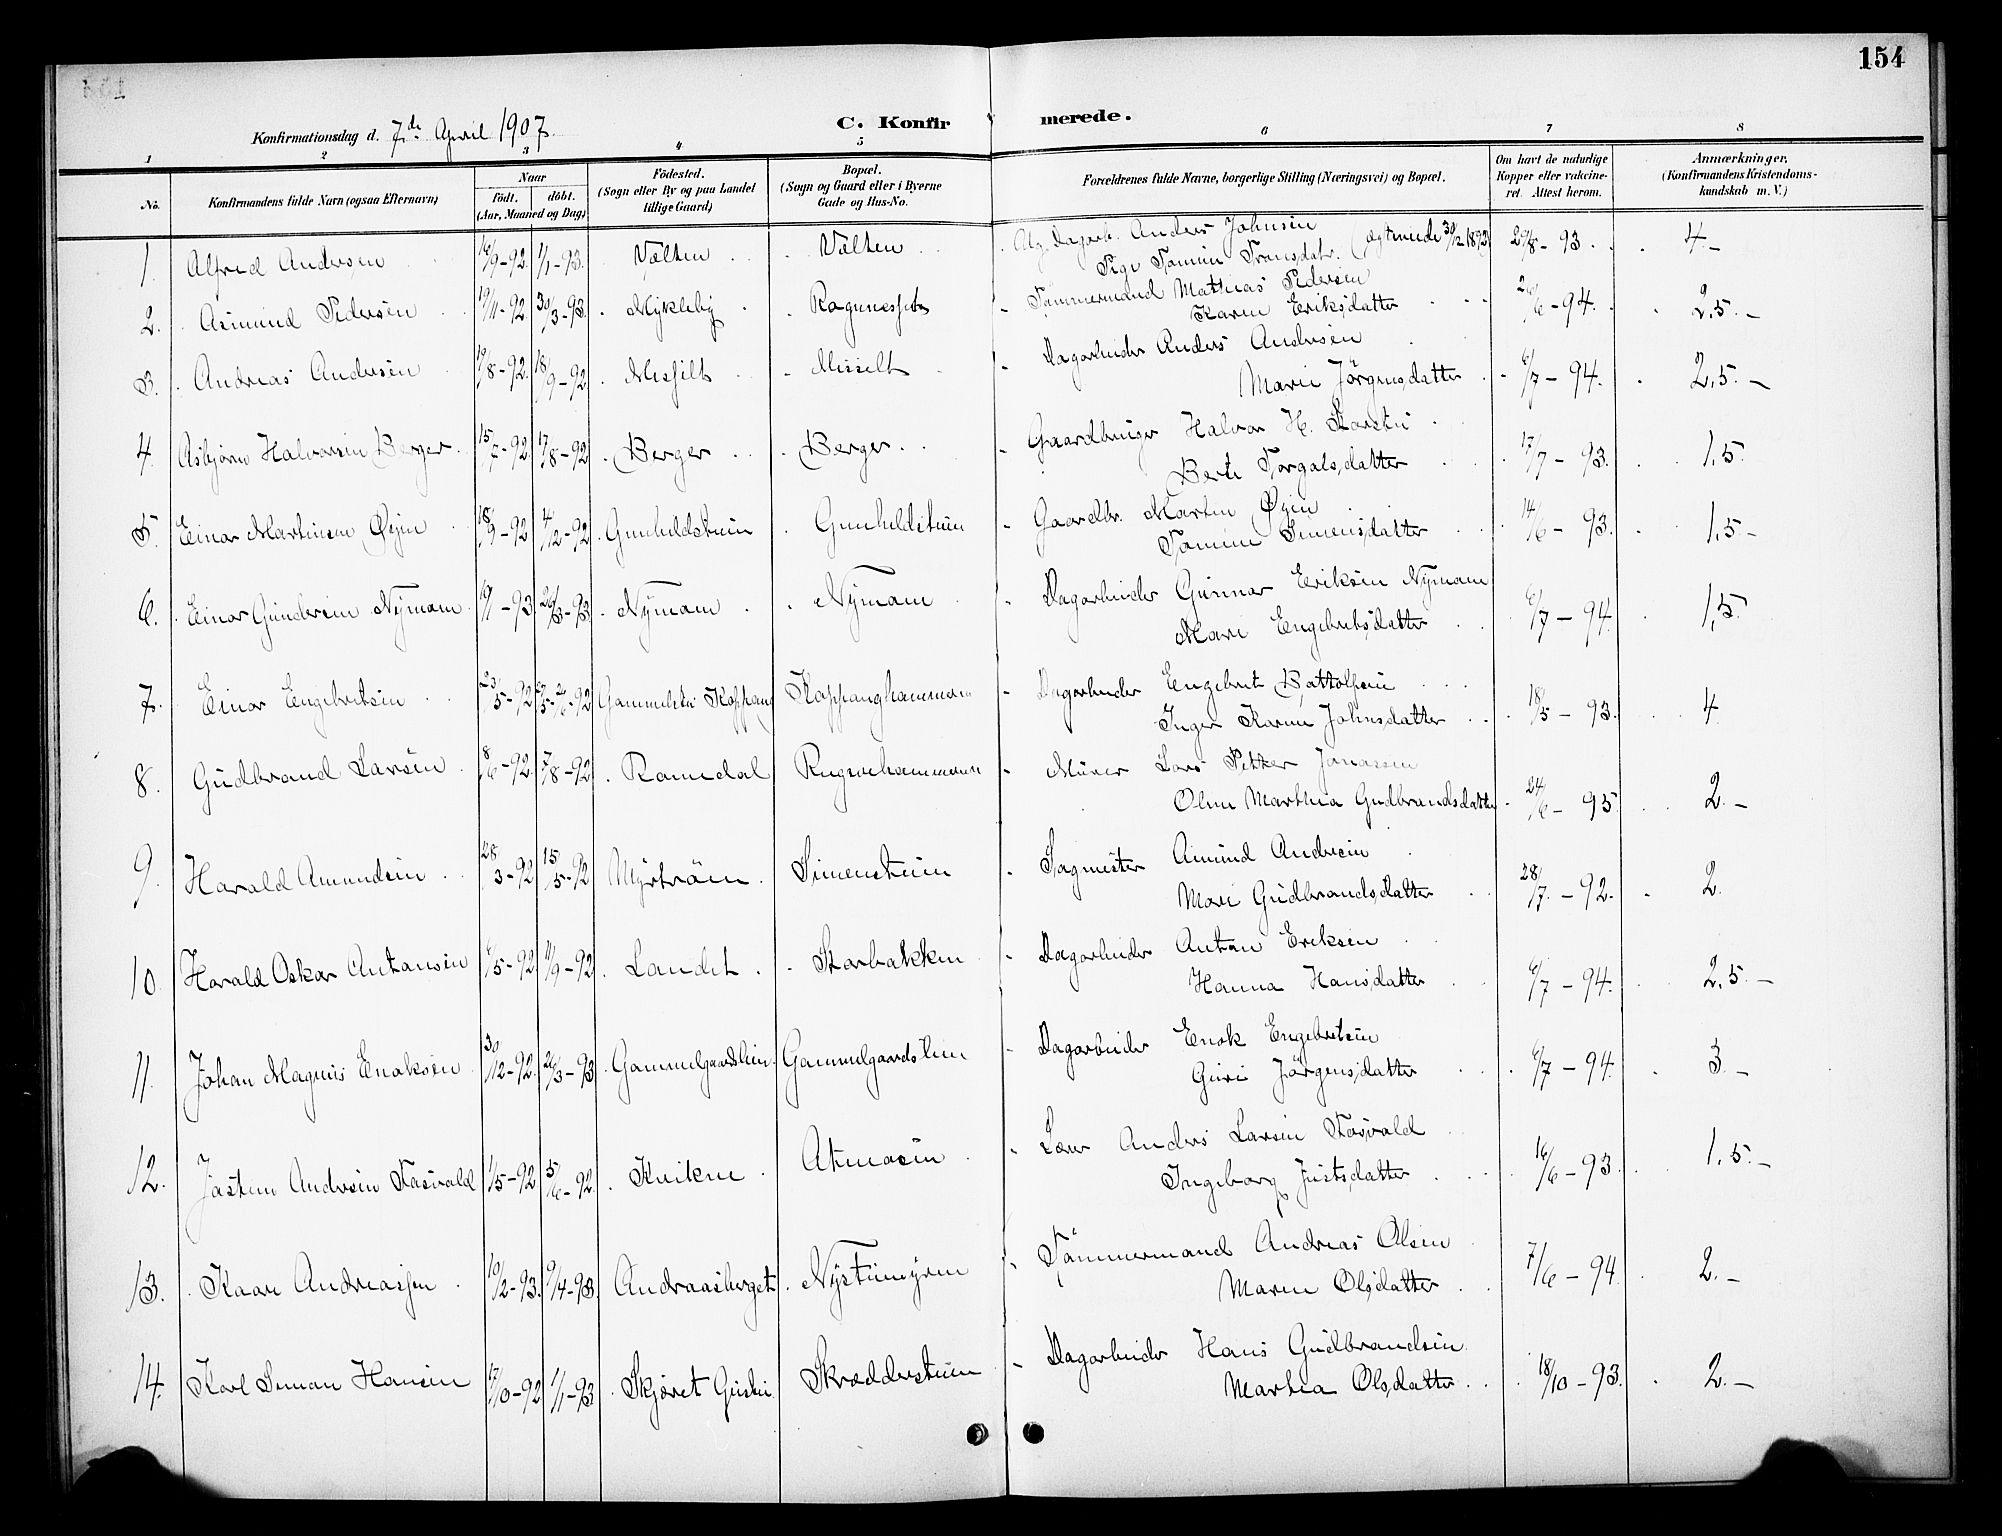 154
Konfirmationsdag d. 7de April 1907.
C. Konfirmerede.
1 2 3 4 5 6 7 8
No. Konfirmandens fulde Navn (ogsaa Efternavn) Naar født. døbt. (Aar, Maaned og Dag) Fødested. (Sogn eller By og paa Landet tillige Gaard) Bopæl. (Sogn og Gaard eller i Byerne Gade og Hus-No. Forældrenes fulde Navne, borgerlige Stilling (Næringsvei) og Bopæl. Om havt de naturlige Kopper eller vakcineret. Attest herom. Anmærkninger, (Konfirmandens Kristendomskundskab m. V.)
1. Alfred Andersen 16/9-92. 1/1-93. Vælten Vælten Ug. Dagarb. Anders Johnsen (ægtviede 30/12 1892) 29/8-93. 4-
Pige Tomine Fransdatr.
2. Asmund Pedersen 19/11-92. 30/3-93. Mykleby Ragnnes Tømmermand Mathias Pedersen
Karen Eriksdatter 26/6-94. 2,5.-
3. Andreas Andersen 10/8-92. 18/9-92. Messelt Misselt Dagarbeider Anders Andersen
Marie Jörgensdatter 6/7-94. 2,5.-
4. Asbjørn Halvorsen Berger 15/7-92. 17/8-92 Berger Berger Gaardbruger Halvor H.
Berte Torgalsdatter 17/7-93. 1,5.
5. Einar Martinsen Øyen 18/9-92 4/12-92 Gunhildstuen Gunhildstuen Gaardbr. Martin Øyen
Tomine Simensdatter 14/6-93. 1,5-
6. Einar Gundersen Nymoen 19/1-93. 26/3-93. Nymoen Nymoen Dagarbeider Gunnar Eriksen Nymoen
Mari Engebretsdatter 6/7-94. 1,5.
7. Einar Engebretsen 23/5-92 -92 Gammelstu Koppang Koppanghammeren Dagarbeider Engebret Battolfsen
Inger Karine Johnsdatter 18/5-93. 4
8. Gudbrand Larsen 8/6-92. 7/8-92 Romedal Murer Lars Petter Jonassen
Oline Marthea Gudbrandsdatter 24/6-95 2.-
9. Harald Amundsen 28/3-92 15/5-92 Myrtrøen Simenstuen Sagmester Amund Andersen
Mari Gudbrandsdatter 28/7-92. 2
10. Harald Oskar Antonsen 6/5-92 11/9-92 Landet Storbakken Dagarbeider Anton Eriksen
Hanna Hansdatter 6/7-94. 2,5.-
11. Johan Magnus Enoksen 30/12-92. 26/3-93 Gammelgaardslien Gammelgaardslien Dagarbeider Enok Engebretsen
Guri Jörgensdatter 6/7-94. 3.-
12. Jostein Andersen Fosvold 1/5-92 5/6-92. Kvikne Atnaosen Lærer Anders Larsen Fosvold
Ingeborg Justsdatter 16/6-93. 1.5.-
13. Kaare Andreassen 10/2-93. 9/4-93. Andraasberget Nystumyren Tømmermand Andreas Olsen
Maren Olsdatter 7/6-94. 2.-
14. Karl Simon Hansen 17/10-92 1/1-93 Skjøret Skrædderstuen Dagarbeider Hans Gudbrandsen
Marthea Olsdatter 18/10-93. 2.-